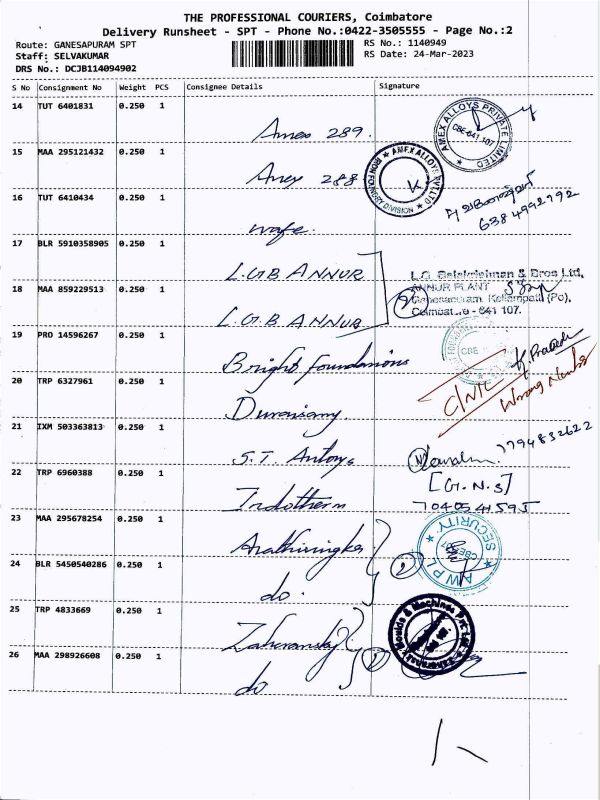 THE PROFESSIONAL COURIERS, Coimbatore
Delivery Runsheet - SPT - Phone No.:0422-3505555 - Page No.:2
Route: GANESAPURAM SPT
RS No.: 1140949
Staff: SELVAKUMAR
RS Date: 24-Mar-2023
DRS No.: DCJB114094902
S No Consignment No Weight PCS Consignee Details Signature
14 TUT 6401831 0.250 1
Amex 289.
AMEX ALLOYS PRIVATE LIMITED
CBE-641 107
15 MAA 295121432 0.250 1
Amex 288
AMEX ALLOYS PVT LTD
IRON FOUNDRY DIVISION
16 TUT 6410434 0.250 1
6384992792
17 BLR 5910358905 0.250 1
L.G.B ANNUR
L.G. Balakrishnan & Bros Ltd,
ANNUR PLANT
18 MAA 859229513 0.250 1
L.G.B ANNUR
Ganesapuram, Kellampatti (Po),
Coimbatore - 641 107.
19 PRO 14596267 0.250 1
Bright Foundations
CBE
20 TRP 6327961 0.250 1
Duraisamy
Wrong Number
21 IXM 503363813 0.250 1
S.T. Antony
7794832622
22 TRP 6960388 0.250 1
Indotherm
[G.N.S]
7040541595
23 MAA 295678254 0.250 1
AWPL
SECURITY
24 BLR 5450540286 0.250 1
do.
25 TRP 4833669 0.250 1
Zahoransky
Zahoransky Moulds & Machines Pvt Ltd
26 MAA 298926608 0.250 1
do